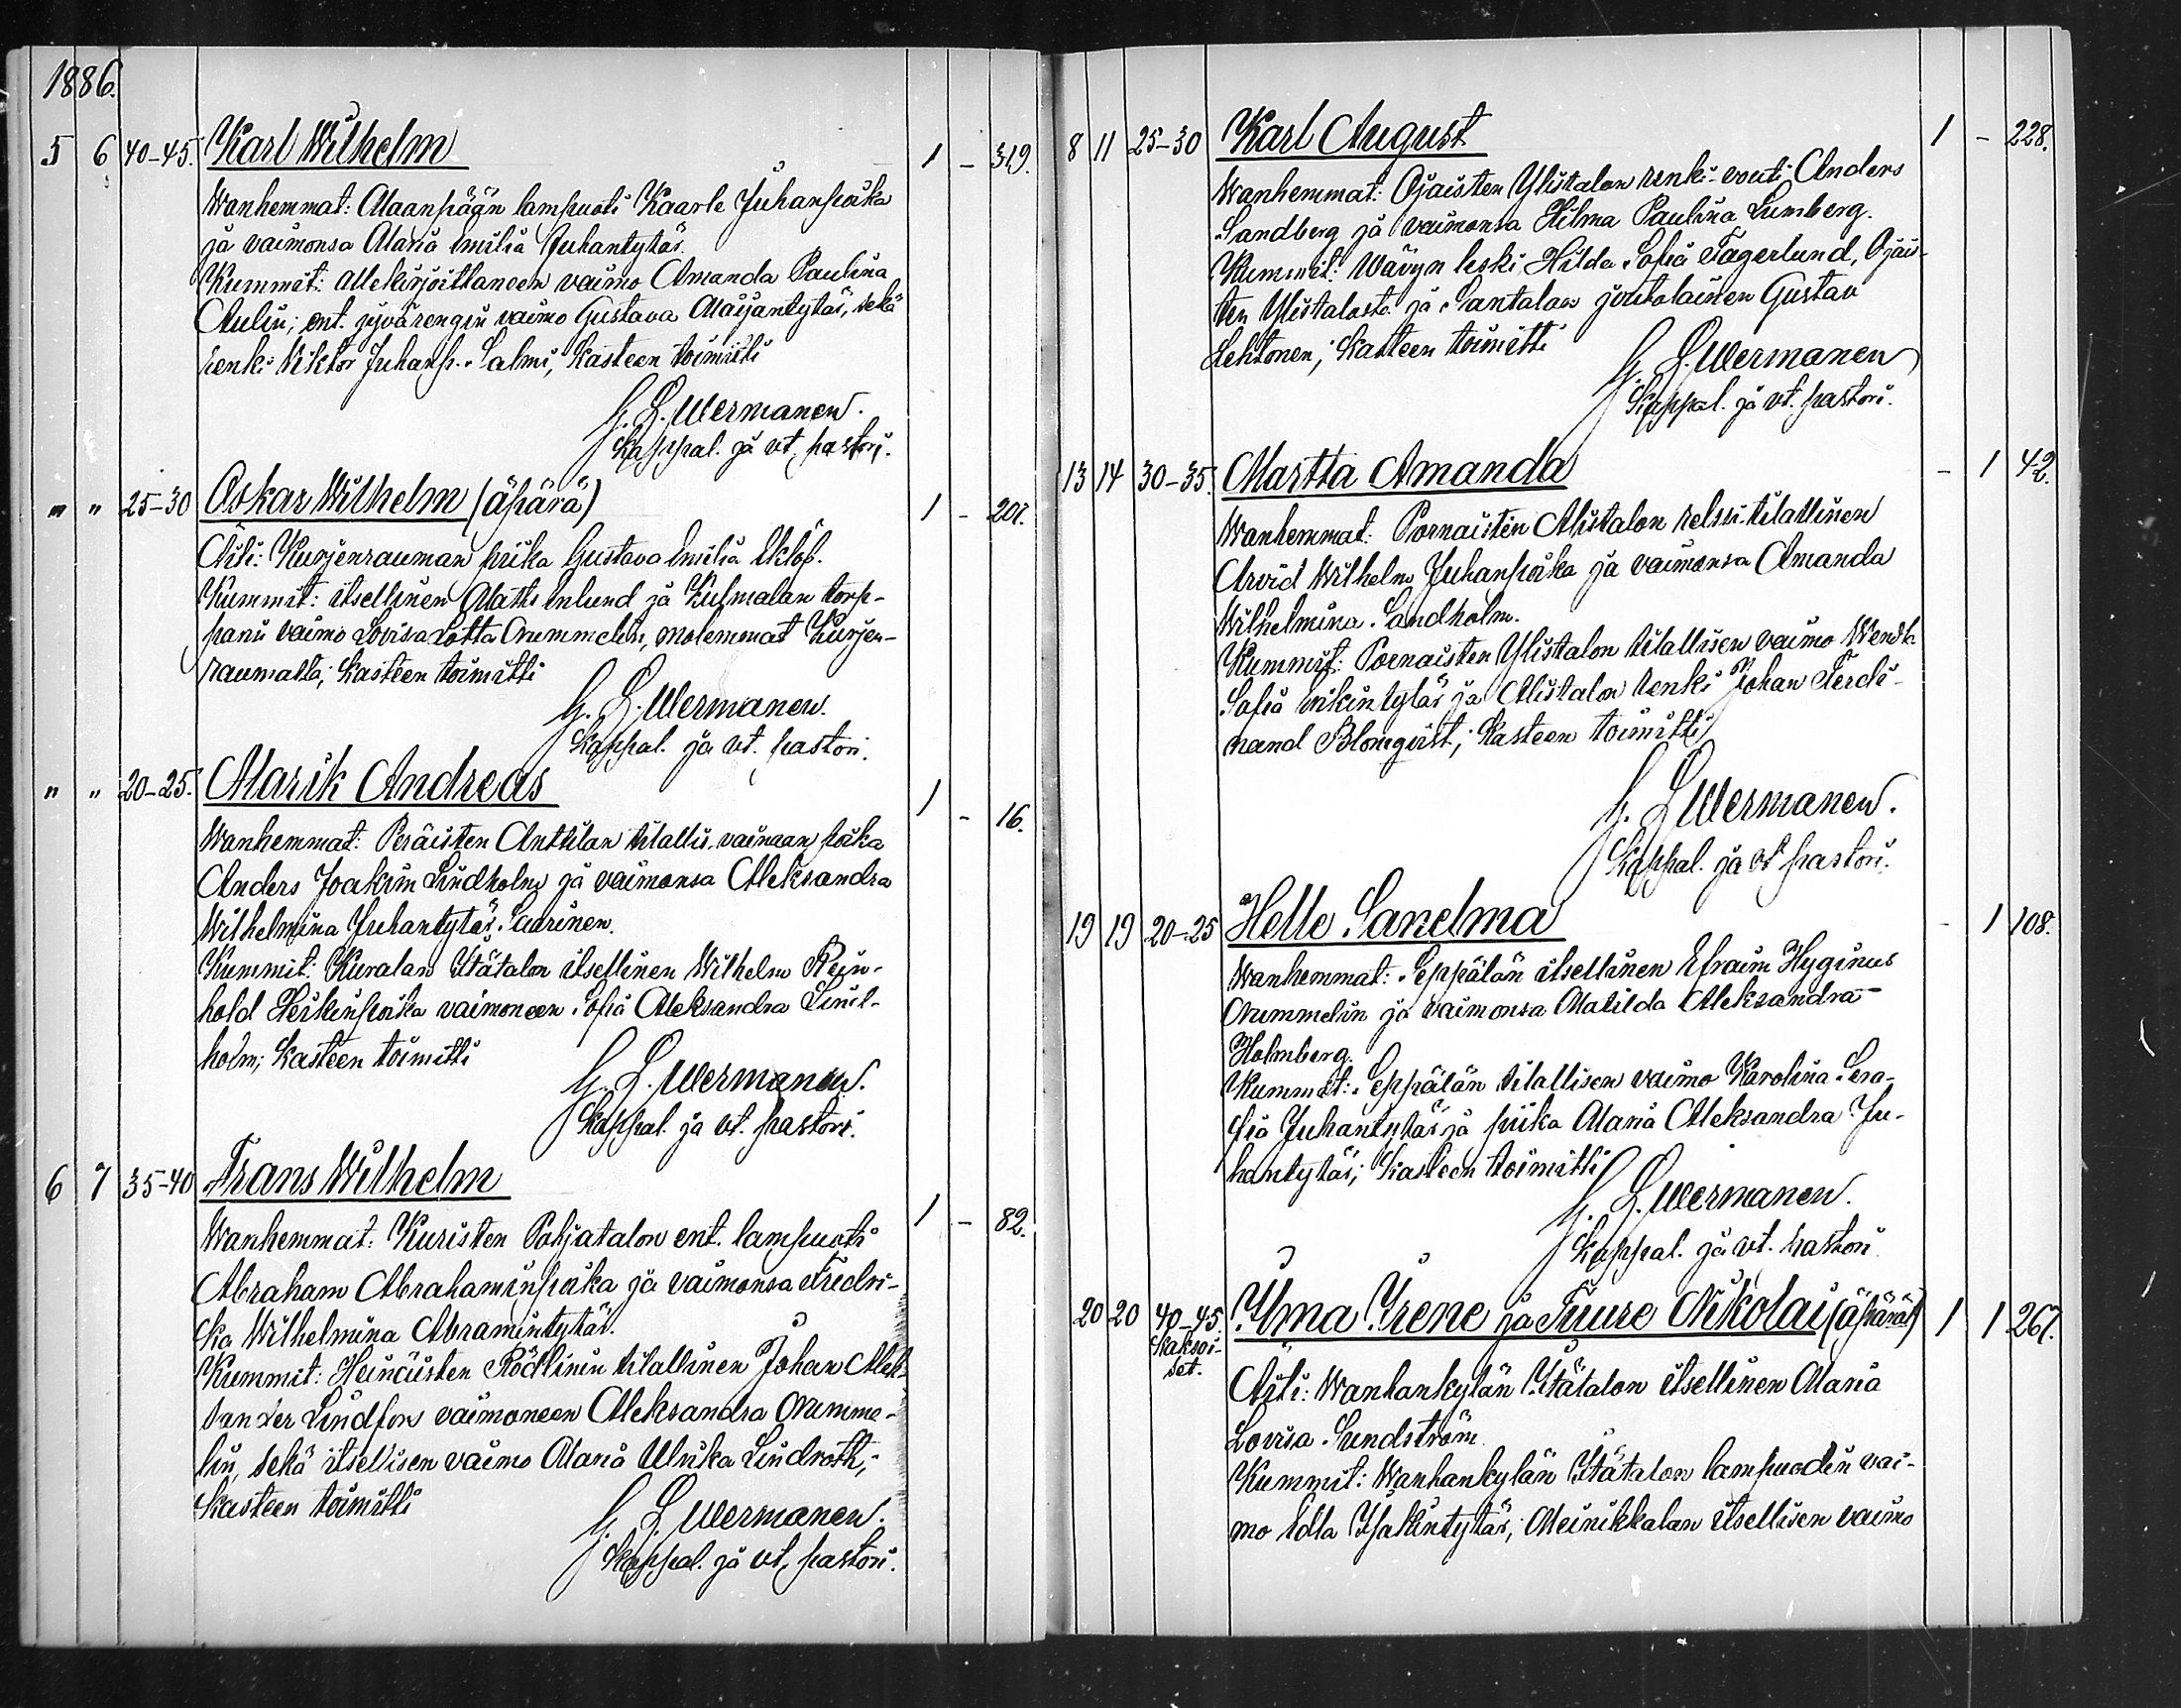 1886.
5 6 40-45. Karl Wilhelm 1 - 319.
Wanhemmat: Maanpään lampuoti Kaarle Juhanpoika
ja vaimonsa Maria Emilia Juhantytär.
Kummit: allekirjoittaneen vaimo Amanda Paulina
Aulin; ent. jyvärengin vaimo Gustava Maijantytär, sekä
renki Viktor Juhanp. Salmi; kasteen toimitti
G. L. Wermanen.
Kappal. ja vt. pastori.
" " 25-30 Oskar Wilhelm (äpärä) 1 - 207.
Äiti: Kurjenrauman piika Gustava Emilia Eklöf.
Kummit: itsellinen Matts Enlund ja Kulmalan torp-
parin vaimo Lovisa Lotta Nummelin, molemmat Kurjen-
raumalta; kasteen toimitti
G. L. Wermanen.
Kappal. ja vt. pastori.
" " 20-25. Marik Andreas 1 - 16.
Wanhemmat: Peräisten Anttilan tilallis. vainaan poika
Anders Joakim Lindholm ja vaimonsa Aleksandra
Wilhelmina Juhantytär Saarinen.
Kummit: Kuralan Itätalon itsellinen Wilhelm Rein-
hold Heikinpoika vaimoneen Sofia Aleksandra Lind-
holm; kasteen toimitti
G. L. Wermanen.
Kappal. ja vt. pastori.
6 7 35-40 Frans Wilhelm 1 - 82.
Wanhemmat: Kuristen Pohjatalon ent. lampuoti
Abraham Abrahaminpoika ja vaimonsa Fredri-
ka Wilhelmina Abramintytär.
Kummit: Heinäisten Rödlinin tilallinen Johan Alek-
sander Lindfors vaimoneen Aleksandra Numme-
lin, sekä itsellisen vaimo Maria Ulrika Lindroth;
kasteen toimitti
G. L. Wermanen.
Kappal. ja vt. pastori.
8 11 25-30 Karl August 1 - 228.
Wanhemmat: Ojaisten Ylistalon renki-vouti Anders
Sandberg ja vaimonsa Hilma Paulina Lumberg.
Kummit: Wävyn leski Hilda Sofia Fagerlund, Ojais-
ten Ylistalosta ja Santalan joutolainen Gustav
Lehtonen; kasteen toimitti
G. L. Wermanen
Kappal. ja vt. pastori.
13 14 30-35. Martta Amanda - 1 42.
Wanhemmat: Pornaisten Alistalon relssi-tilallinen
Arvid Wilhelm Juhanpoika ja vaimonsa Amanda
Wilhelmina Sandholm.
Kummit: Pornaisten Ylistalon tilallisen vaimo Wendla
Sofia Erikintytär ja Alistalon renki Johan Ferdi-
nand Blomqvist; kasteen toimitti
G. L. Wermanen.
Kappal. ja vt pastori.
19 19 20-25 Helle Sanelma - 1 108.
Wanhemmat: Seppälän itsellinen Efraim Hyginus
Nummelin ja vaimonsa Matilda Aleksandra
Holmberg.
Kummit: Seppälän tilallisen vaimo Karolina Sera-
fia Juhantytär ja piika Maria Aleksandra Ju-
hantytär; kasteen toimitti
G. L. Wermanen.
Kappal. ja vt. pastori
20 20 40-45. Ilma Irene ja Tuure Nikolai (äpärät) 1 1 267.
Kaksoi-
set.
Äiti: Wanhankylän Itätalon itsellinen Maria
Lovisa Sundström.
Kummit: Wanhankylän Itätalon lampuodin vai-
mo Edla Isakintytär; Meinikkalan itsellisen vaimo